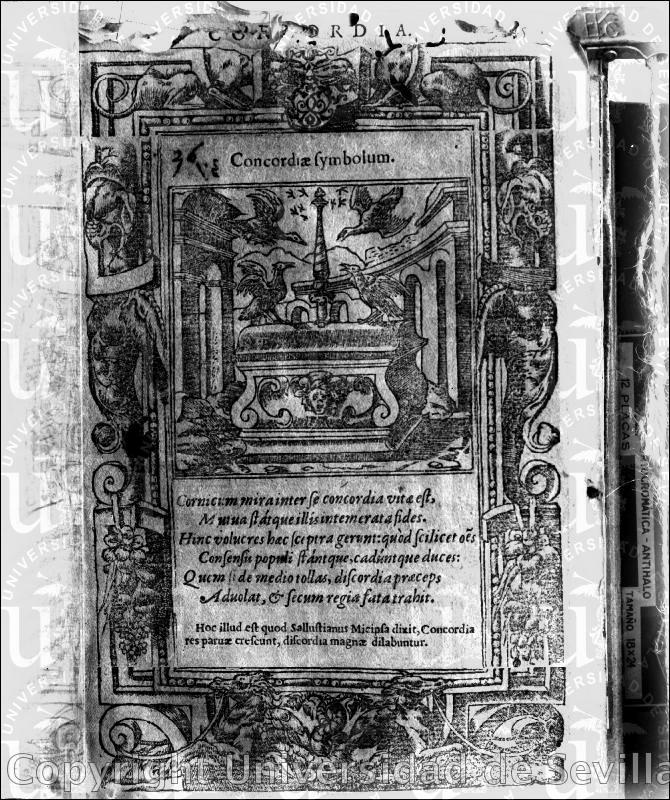 CONCORDIA.
36.
Concordiæ ſymbolum.
Cornicum mira inter ſe concordia vitæ eſt,
Mutua ſtátque illis intemerata fides.
Hinc volucres hæc ſceptra gerunt: quòd ſcilicet oẽs
Conſenſu populi ſtántque, cadúntque duces:
Quem ſi de medio tollas, diſcordia præceps
Aduolat, & ſecum regia fata trahit.
Hoc illud eſt quod Salluſtianus Micipſa dixit, Concordia
res paruæ creſcunt, diſcordia magnæ dilabuntur.
12 PLACAS
ANTIHALO
TAMAÑO 18x24
Copyright Universidad de Sevilla